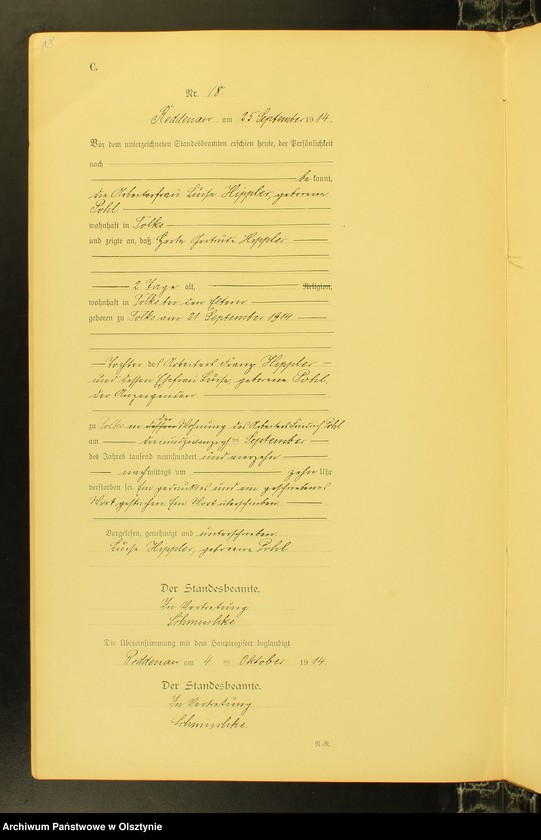 C.
Nr. 18
Reddenau am 25 September 1914.
Vor dem unterzeichneten Standesbeamten erschien heute, der Persönlichkeit
nach
be kannt,
die Arbeiterfrau Luise Hippler, geborene
Pohl
wohnhaft in Tolks
und zeigte an, daß Herta Gertrude Hippler
2 Tage alt, Religion,
wohnhaft in Tolks bei den Eltern
geboren zu Tolks am 21 September 1914
Tochter des Arbeiters Franz Hippler
und dessen Ehefrau Luise, geborene Pohl,
der Anzeigenden
zu Tolks in der Wohnung des Arbeiters Pohl
am dreiundzwanzigsten September
des Jahres tausend neunhundert und vierzehn
nachmittags um zehn Uhr
verstorben sei. Ein gedrucktes und ein geschriebenes
Wort gestrichen. Ein Wort überschrieben.
Vorgelesen, genehmigt und unterschrieben
Luise Hippler, geborene Pohl
Der Standesbeamte.
In Vertretung
Die Übereinstimmung mit dem Hauptregister beglaubigt
Reddenau am 4 ten Oktober 1914.
Der Standesbeamte.
In Vertretung
Archiwum Państwowe w Olsztynie